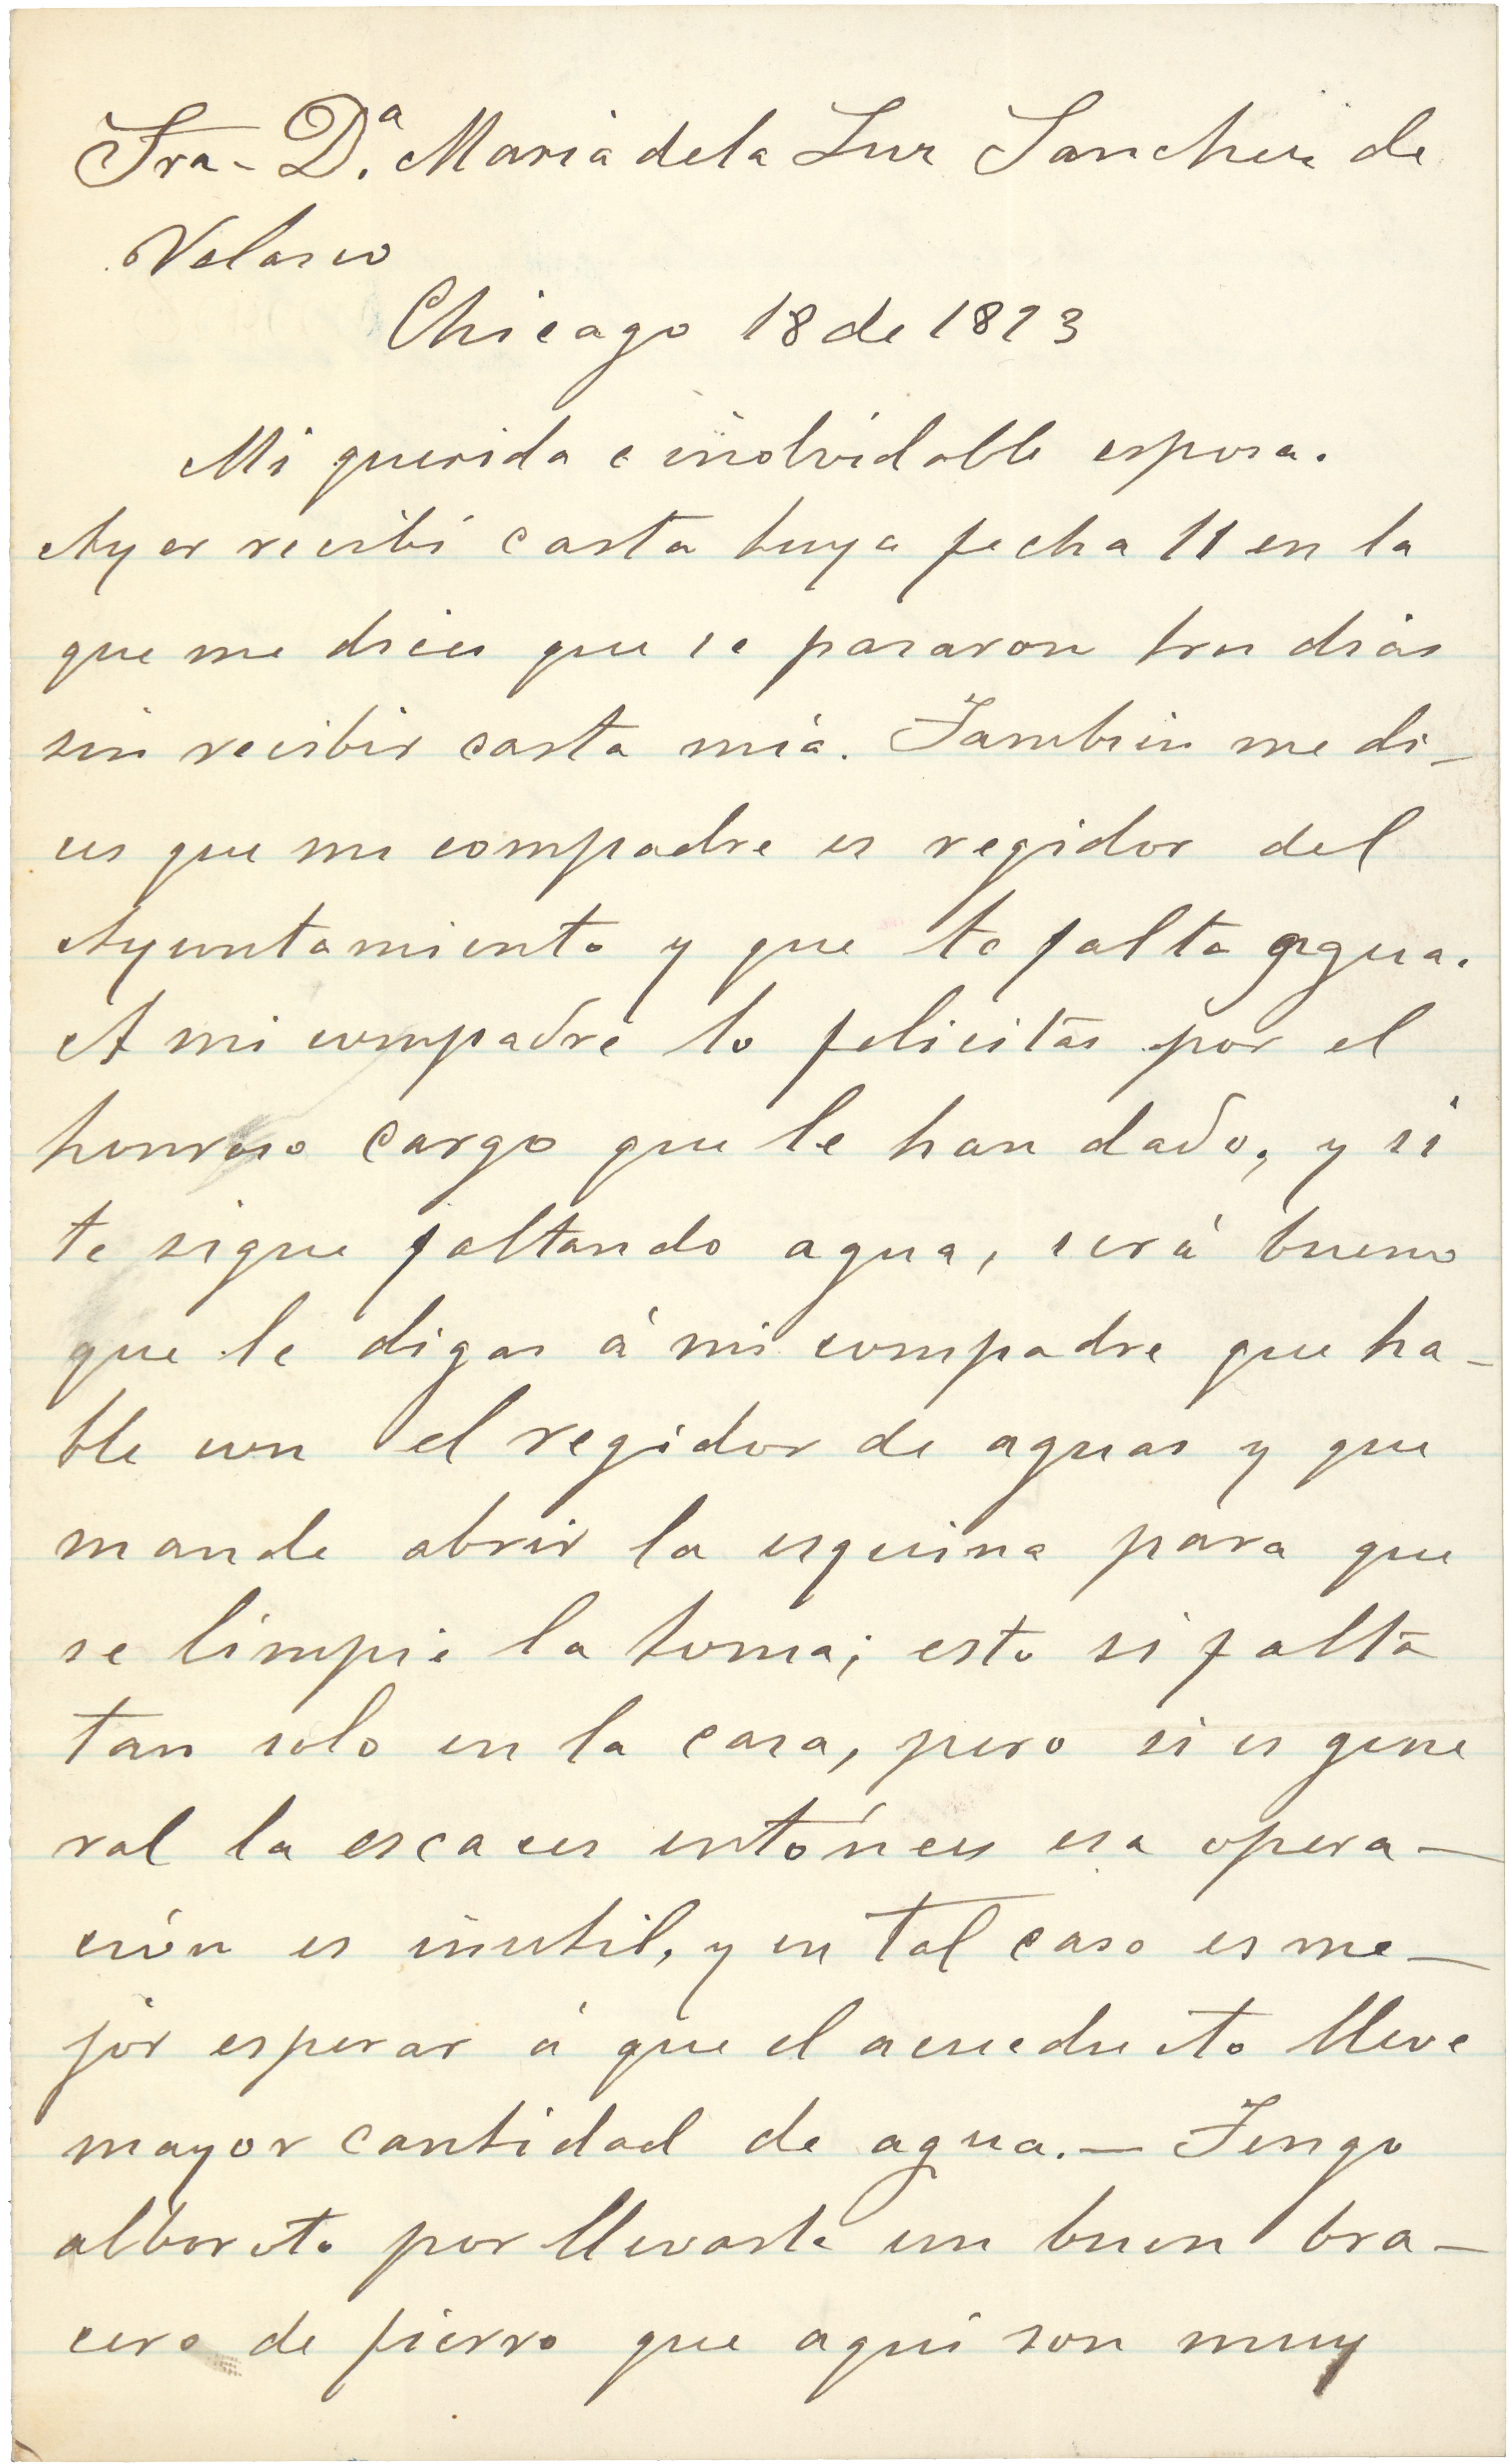 Sra. D.ª Maria de la Luz Sanchez de
Velasco
Chicago 18 de 1893
Mi querida é inolvidable esposa.
Ayer recibí carta tuya fecha 11 en la
que me dices que se pasaron tres dias
sin recibir carta mía. Tambien me di-
ces que mi compadre es regidor del
Ayuntamiento y que te falta agua.
A mi compadre lo felicitas por el
honroso cargo que le han dado, y si
te sigue faltando agua, será bueno
que le digas á mi compadre que ha-
ble con el regidor de aguas y que
mande abrir la esquina para que
se limpie la toma; esto si falta
tan solo en la casa, pero si es gene
ral la escaces entónces esa opera-
ción es inutil, y en tal caso es me-
jor esperar á que el acueducto lleve
mayor cantidad de agua.— Tengo
alboroto por llevarte un buen bra-
cero de fierro que aquí son muy